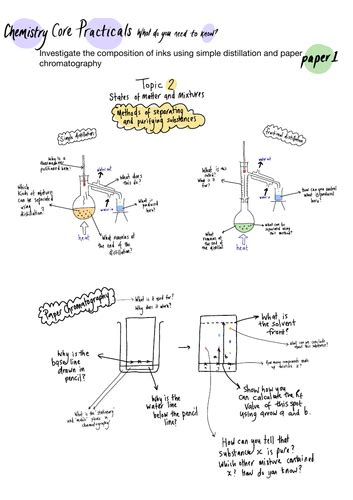 Chemistry Core Practicals What do you need to know?
Investigate the composition of inks using simple distillation and paper
chromatography
paper 1
Topic 2
States of matter and mixtures
Methods of separating
and purifying substances
Simple distillation
Why is a
thermometer
positioned here?
water out
What does
this do?
Which
kinds of mixture
can be separated
using
distillation?
water in
What is
produced
here?
What remains at
the end of the
distillation?
heat
fractional distillation
What is this
called?
What is it
for?
water out
water in
How can you control
what is produced
here?
What remains
at the end of
the distillation
What can be
separated using
this method?
heat
Paper Chromatography
What is it good for?
Why does it work?
Why is the
baseline
drawn in
pencil?
Why is the
water line
below the pencil
line?
What is the 'stationary'
and 'mobile' phases in
chromatography?
What is
the solvent
front?
What can we conclude
about this substance?
How many components make
up substance x?
Show how you
can calculate the Rf
value of this spot
using arrow a and b.
How can you tell that
substance x is pure?
Which other mixture contained
x? How do you know?